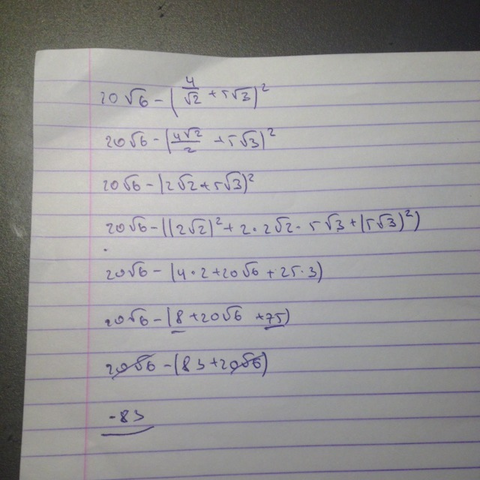 20√6 - (4/√2 + 5√3)²
20√6 - (4√2/2 + 5√3)²
20√6 - (2√2 + 5√3)²
20√6 - ((2√2)² + 2·2√2·5√3 + (5√3)²)
20√6 - (4·2 + 20√6 + 25·3)
20√6 - (8 + 20√6 + 75)
20√6 - (83 + 20√6)
-83